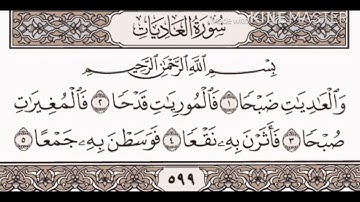 سُورَةُ العَادِيَات
KINEMASTER
بِسْمِ اللَّهِ الرَّحْمَٰنِ الرَّحِيمِ
وَالْعَٰدِيَٰتِ ضَبْحًا ١ فَالْمُورِيَٰتِ قَدْحًا ٢ فَالْمُغِيرَٰتِ
صُبْحًا ٣ فَأَثَرْنَ بِهِۦ نَقْعًا ٤ فَوَسَطْنَ بِهِۦ جَمْعًا ٥
٥٩٩